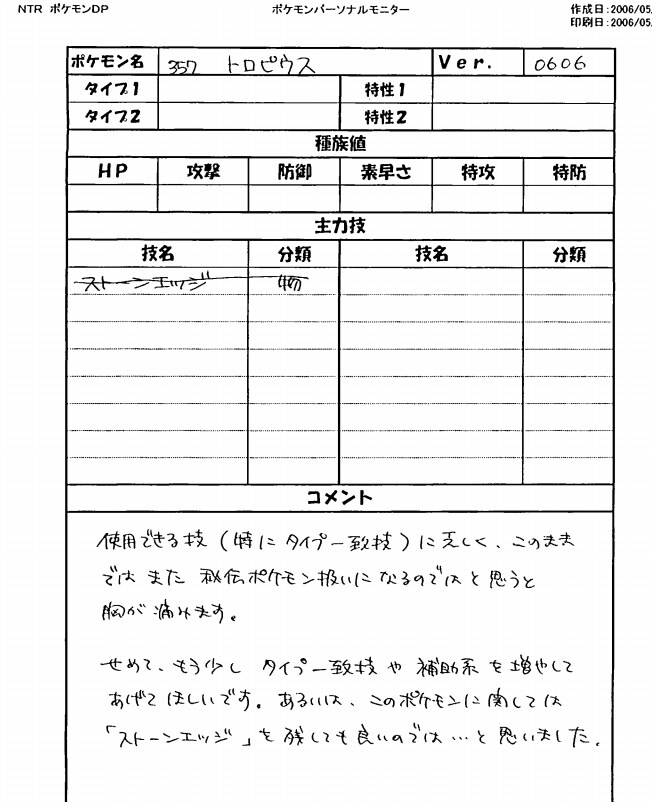 NTR ポケモンDP ポケモンパーソナルモニター 作成日:2006/05
印刷日:2006/05
ポケモン名 357 トロピウス Ver. 0606
タイプ1 特性1
タイプ2 特性2
種族値
HP 攻撃 防御 素早さ 特攻 特防
主力技
技名 分類 技名 分類
ストーンエッジ 物
コメント
使用できる技(特にタイプ一致技)に乏しく、このまま
ではまた秘伝ポケモン扱いになるのではと思うと
胸が痛みます。
せめて、もう少しタイプ一致技や補助系を増やして
あげてほしいです。あるいは、このポケモンに関しては
「ストーンエッジ」を残しても良いのでは…と思いました。